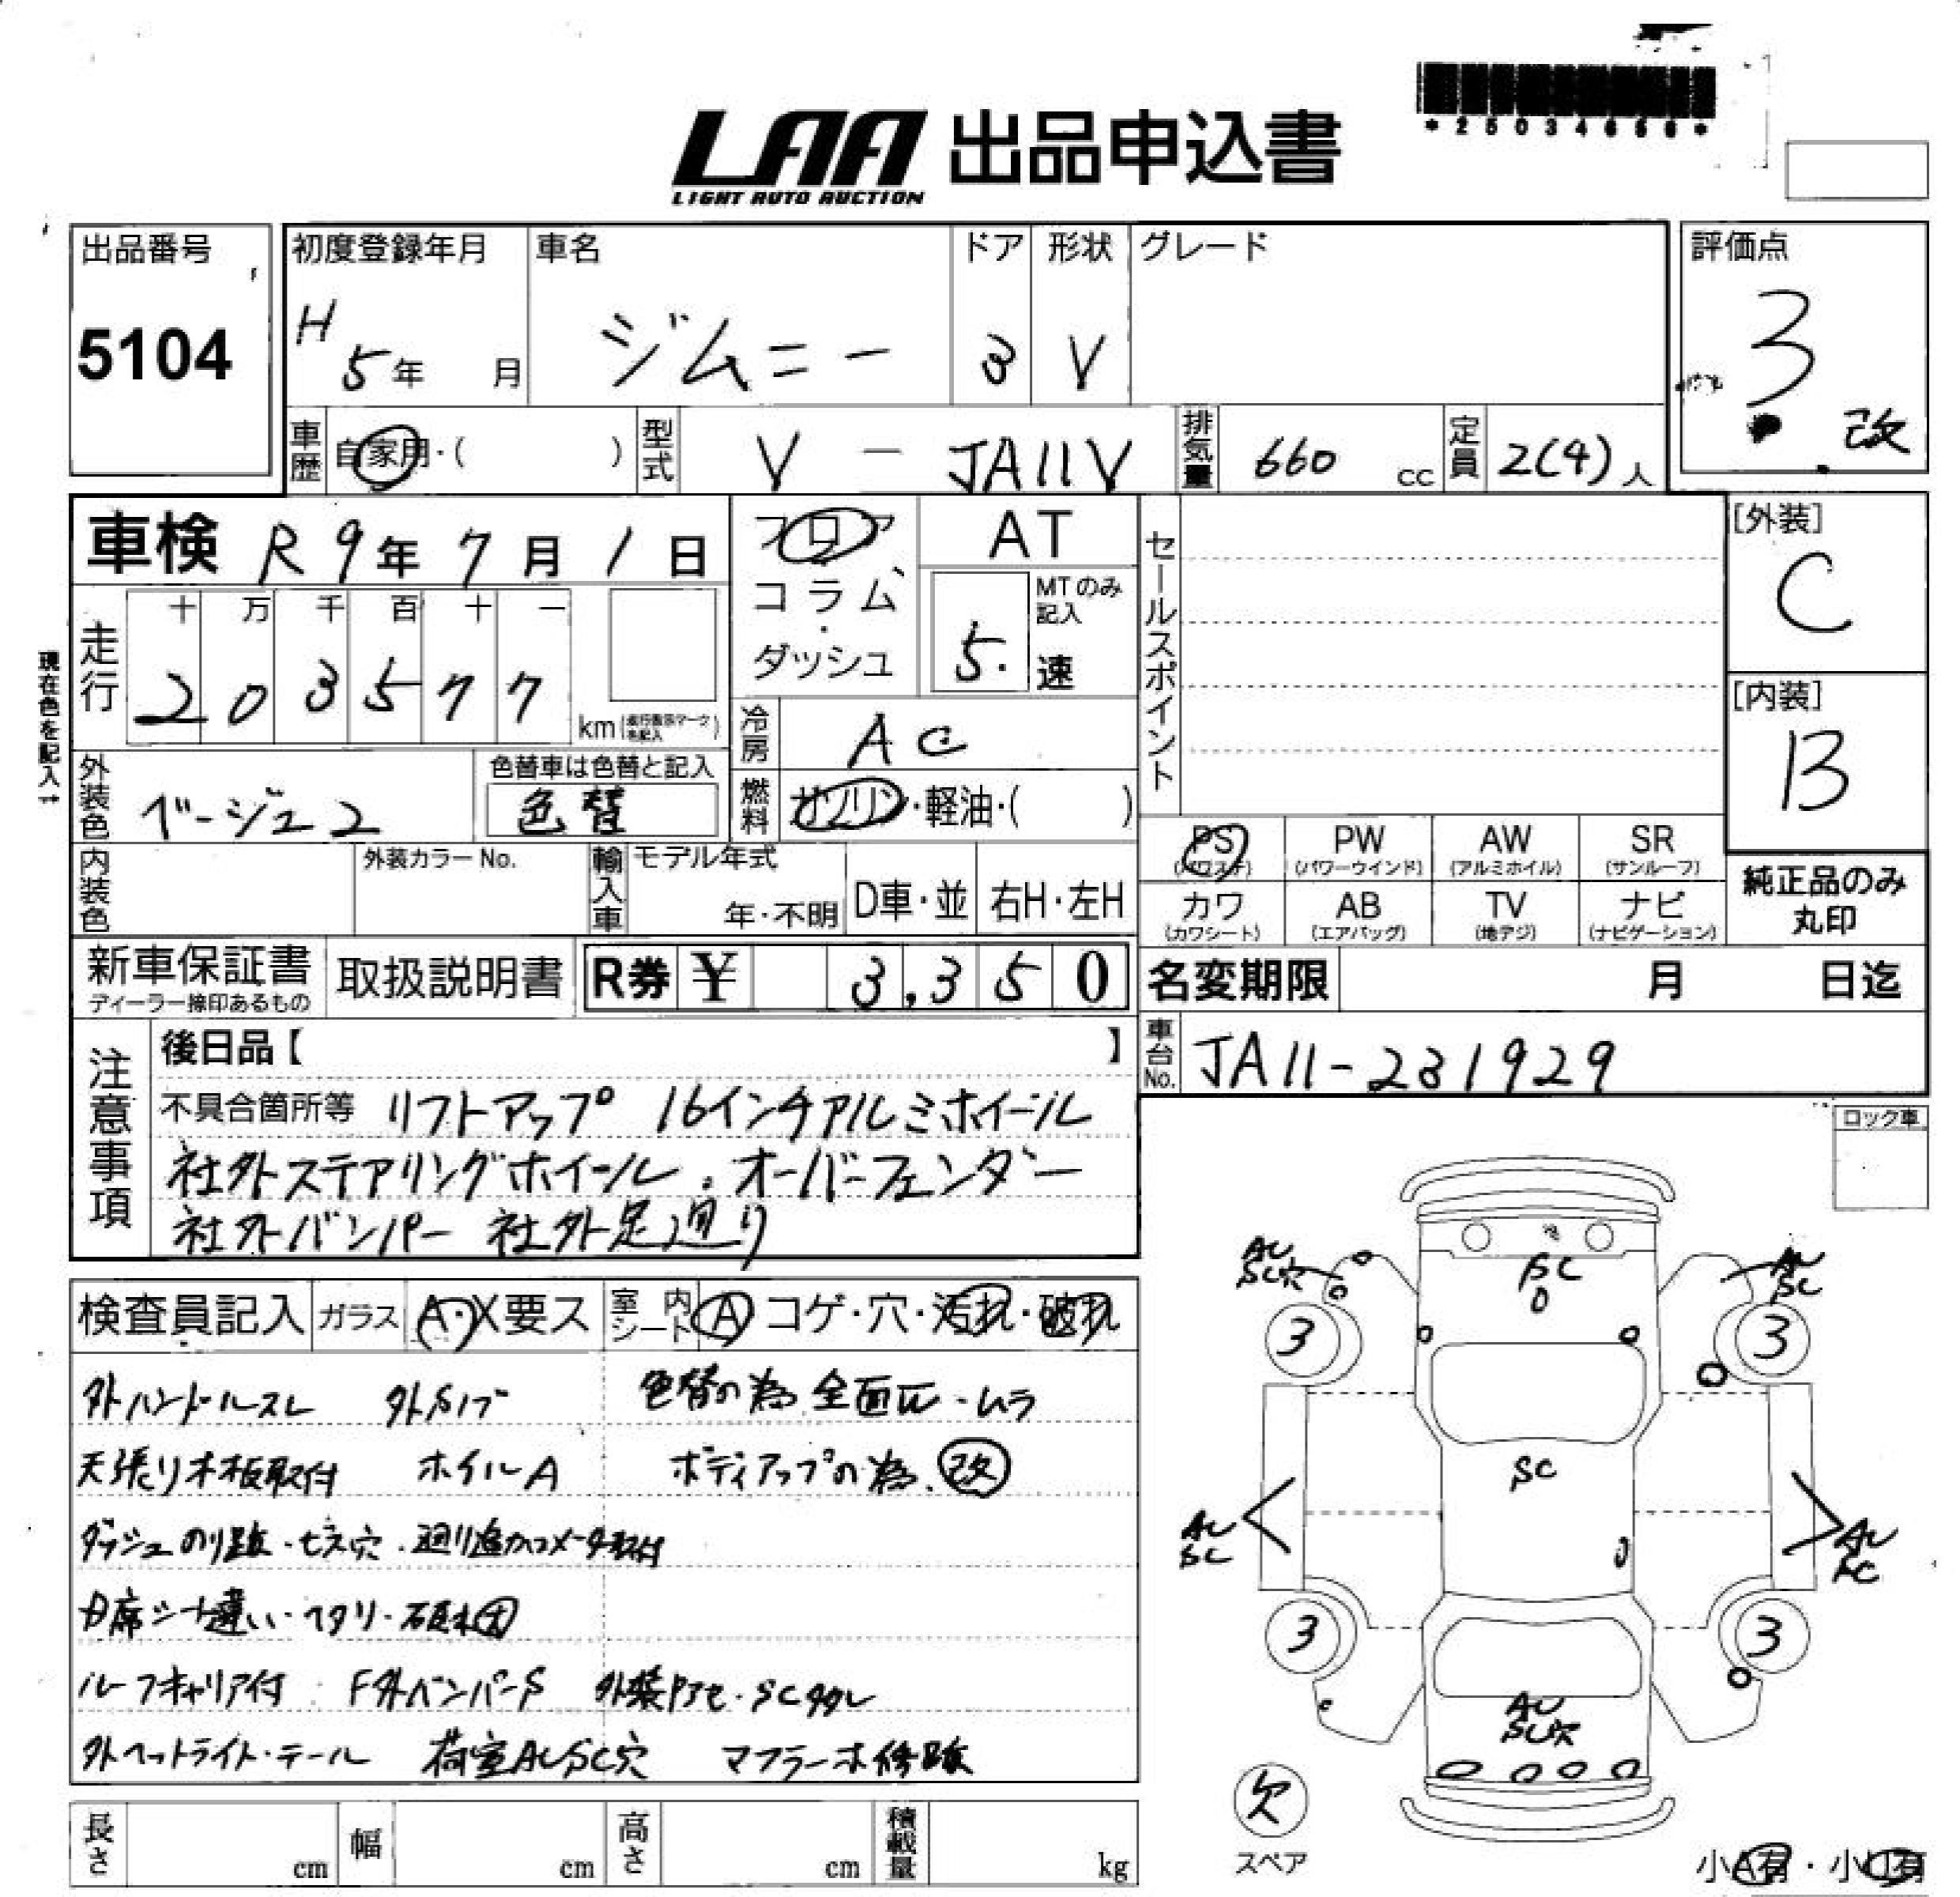 *25034656*
LAA 出品申込書
LIGHT AUTO AUCTION
出品番号
5104
初度登録年月
H 5年 月
車名
ジムニー
ドア
3
形状
V
グレード
評価点
3
改
車歴 自家用・( )
型式 V - JA11V
排気量 660 cc
定員 2(4) 人
車検 R 9年 7月 1日
フロア
コラム・
ダッシュ
AT
MTのみ記入
5. 速
セールスポイント
[外装]
C
[内装]
B
現在色を記入
走行
十 万 千 百 十 一
2 0 3 5 7 7
km
冷房 AC
燃料 ガソリン・軽油・( )
外装色 ベージュ2
色替車は色替と記入
色替
PS (パワステ)
PW (パワーウインド)
AW (アルミホイル)
SR (サンルーフ)
カワ (カワシート)
AB (エアバッグ)
TV (地デジ)
ナビ (ナビゲーション)
純正品のみ
丸印
内装色
外装カラーNo.
輸入車 モデル年式
年・不明
D車・並
右H・左H
新車保証書
ディーラー捺印あるもの
取扱説明書
R券 ¥ 3,350
名変期限 月 日迄
車台No. JA11-231929
注意事項
後日品【 】
不具合箇所等 リフトアップ 16インチアルミホイール
社外ステアリングホイール . オーバーフェンダー
社外バンパー 社外足廻り
ロック車
検査員記入
ガラス A・X要ス
室内シート A コゲ・穴・汚れ・破れ
外ハンドルスレ 外Sノブ 色替の為 全面 ・ムラ
天張り木板取付 ホイルA ボディアップの為. 改
ダッシュのり跡・ビス穴・廻り追加メータ取付
席シート違い・ヘタリ・破れ大
ルーフキャリア付 F外バンパーS 外装アセ・SC多
外ヘットライト・テール 荷室AUSC穴 マフラー補修跡
AU
SC穴
SC
AU
SC
3
3
SC
AU
SC
AU
SC
3
3
AU
SC穴
欠
スペア
長さ cm
幅 cm
高さ cm
積載量 kg
小A有・小U有